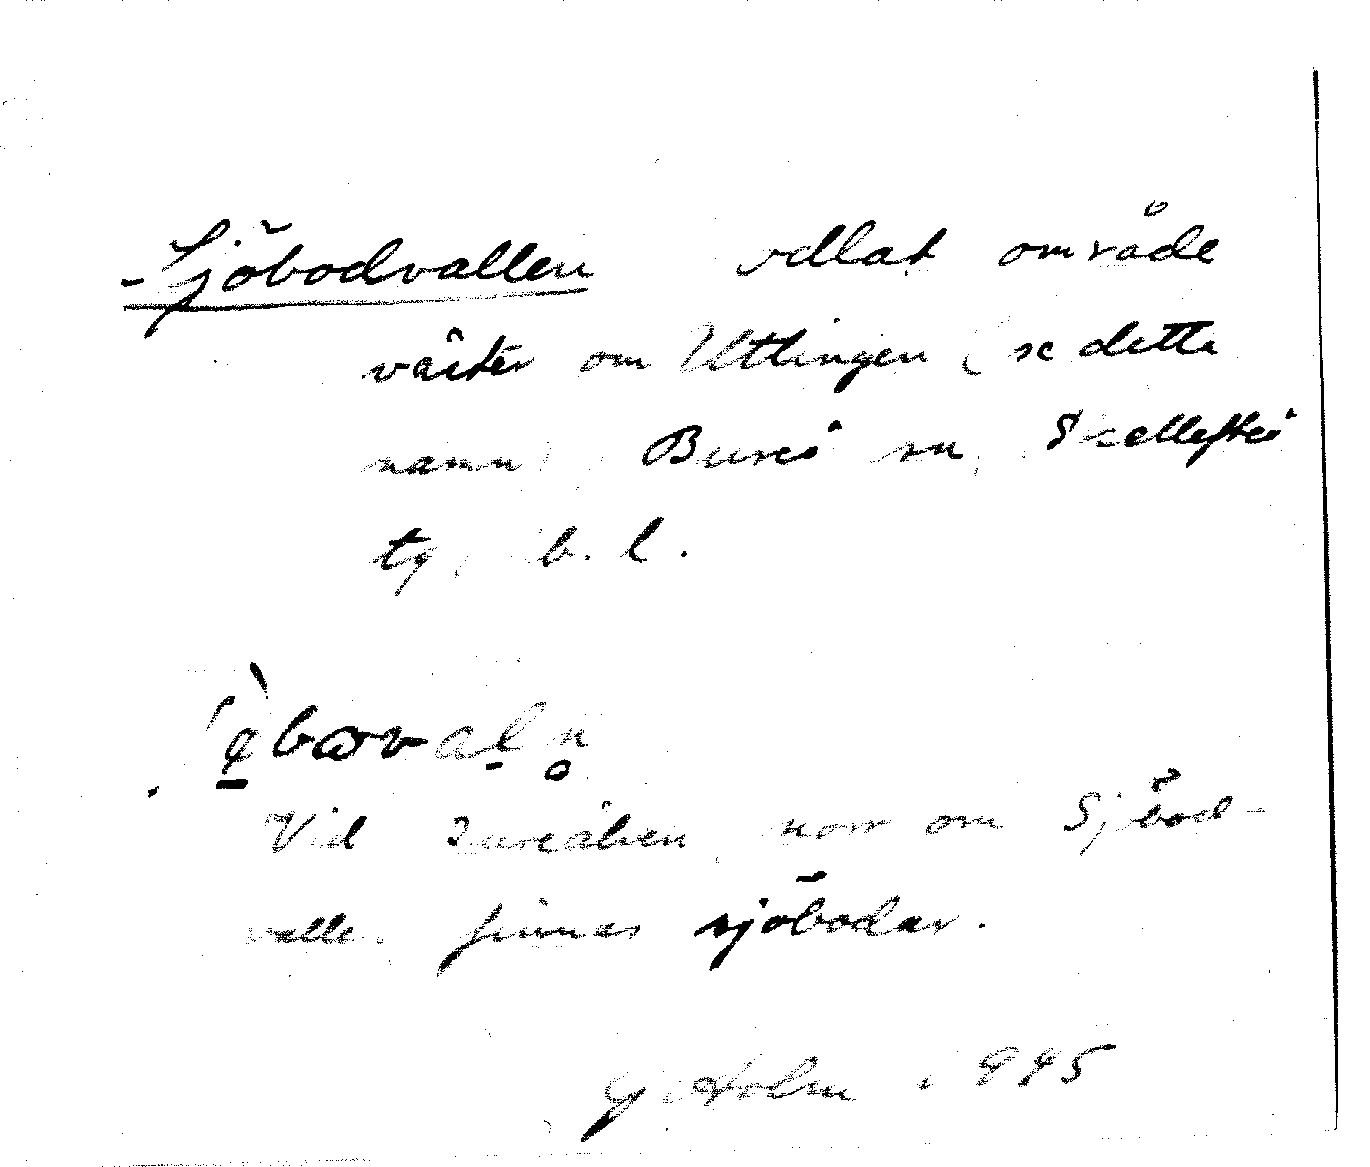 Sjöbodvallen odlat område
väster om Uttingen (se detta
namn), Bureå sn, Skellefteå
tg, b. l.
Vid Bureälven, norr om Sjöbod-
vallen finnas sjöbodar.
G Holm 1945